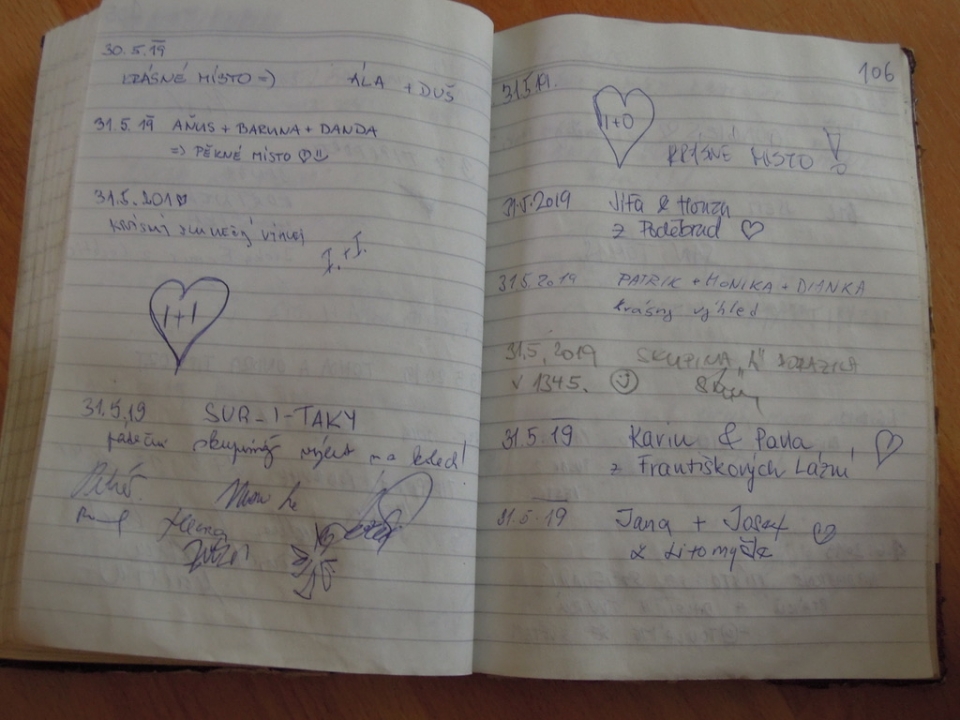 30.5.19
KRÁSNÉ MÍSTO =) ÁĹA + DUŠ
31.5.19 AŇUS + BARUNA + DANDA
=> PĚKNÉ MÍSTO
31.5.201
I.+J.
1+1
31.5.19 SUR-I-TAKY
páteční skupinový výlet na kolech!
106
31.5.19.
I+O
KRÁSNÉ MÍSTO !
31.5.2019 Jiťa & Honza
z Poděbrad ♡
31.5.2019 PATRIK + MONIKA + DIANKA
krásný výhled
31.5.2019 SKUPINA "A" DORAZILA
v 1345. ☺
31.5.19 Karin & Pavla ♡
z Františkových Lázní
31.5.19 Jana + Josef ♡
z Litomyšle